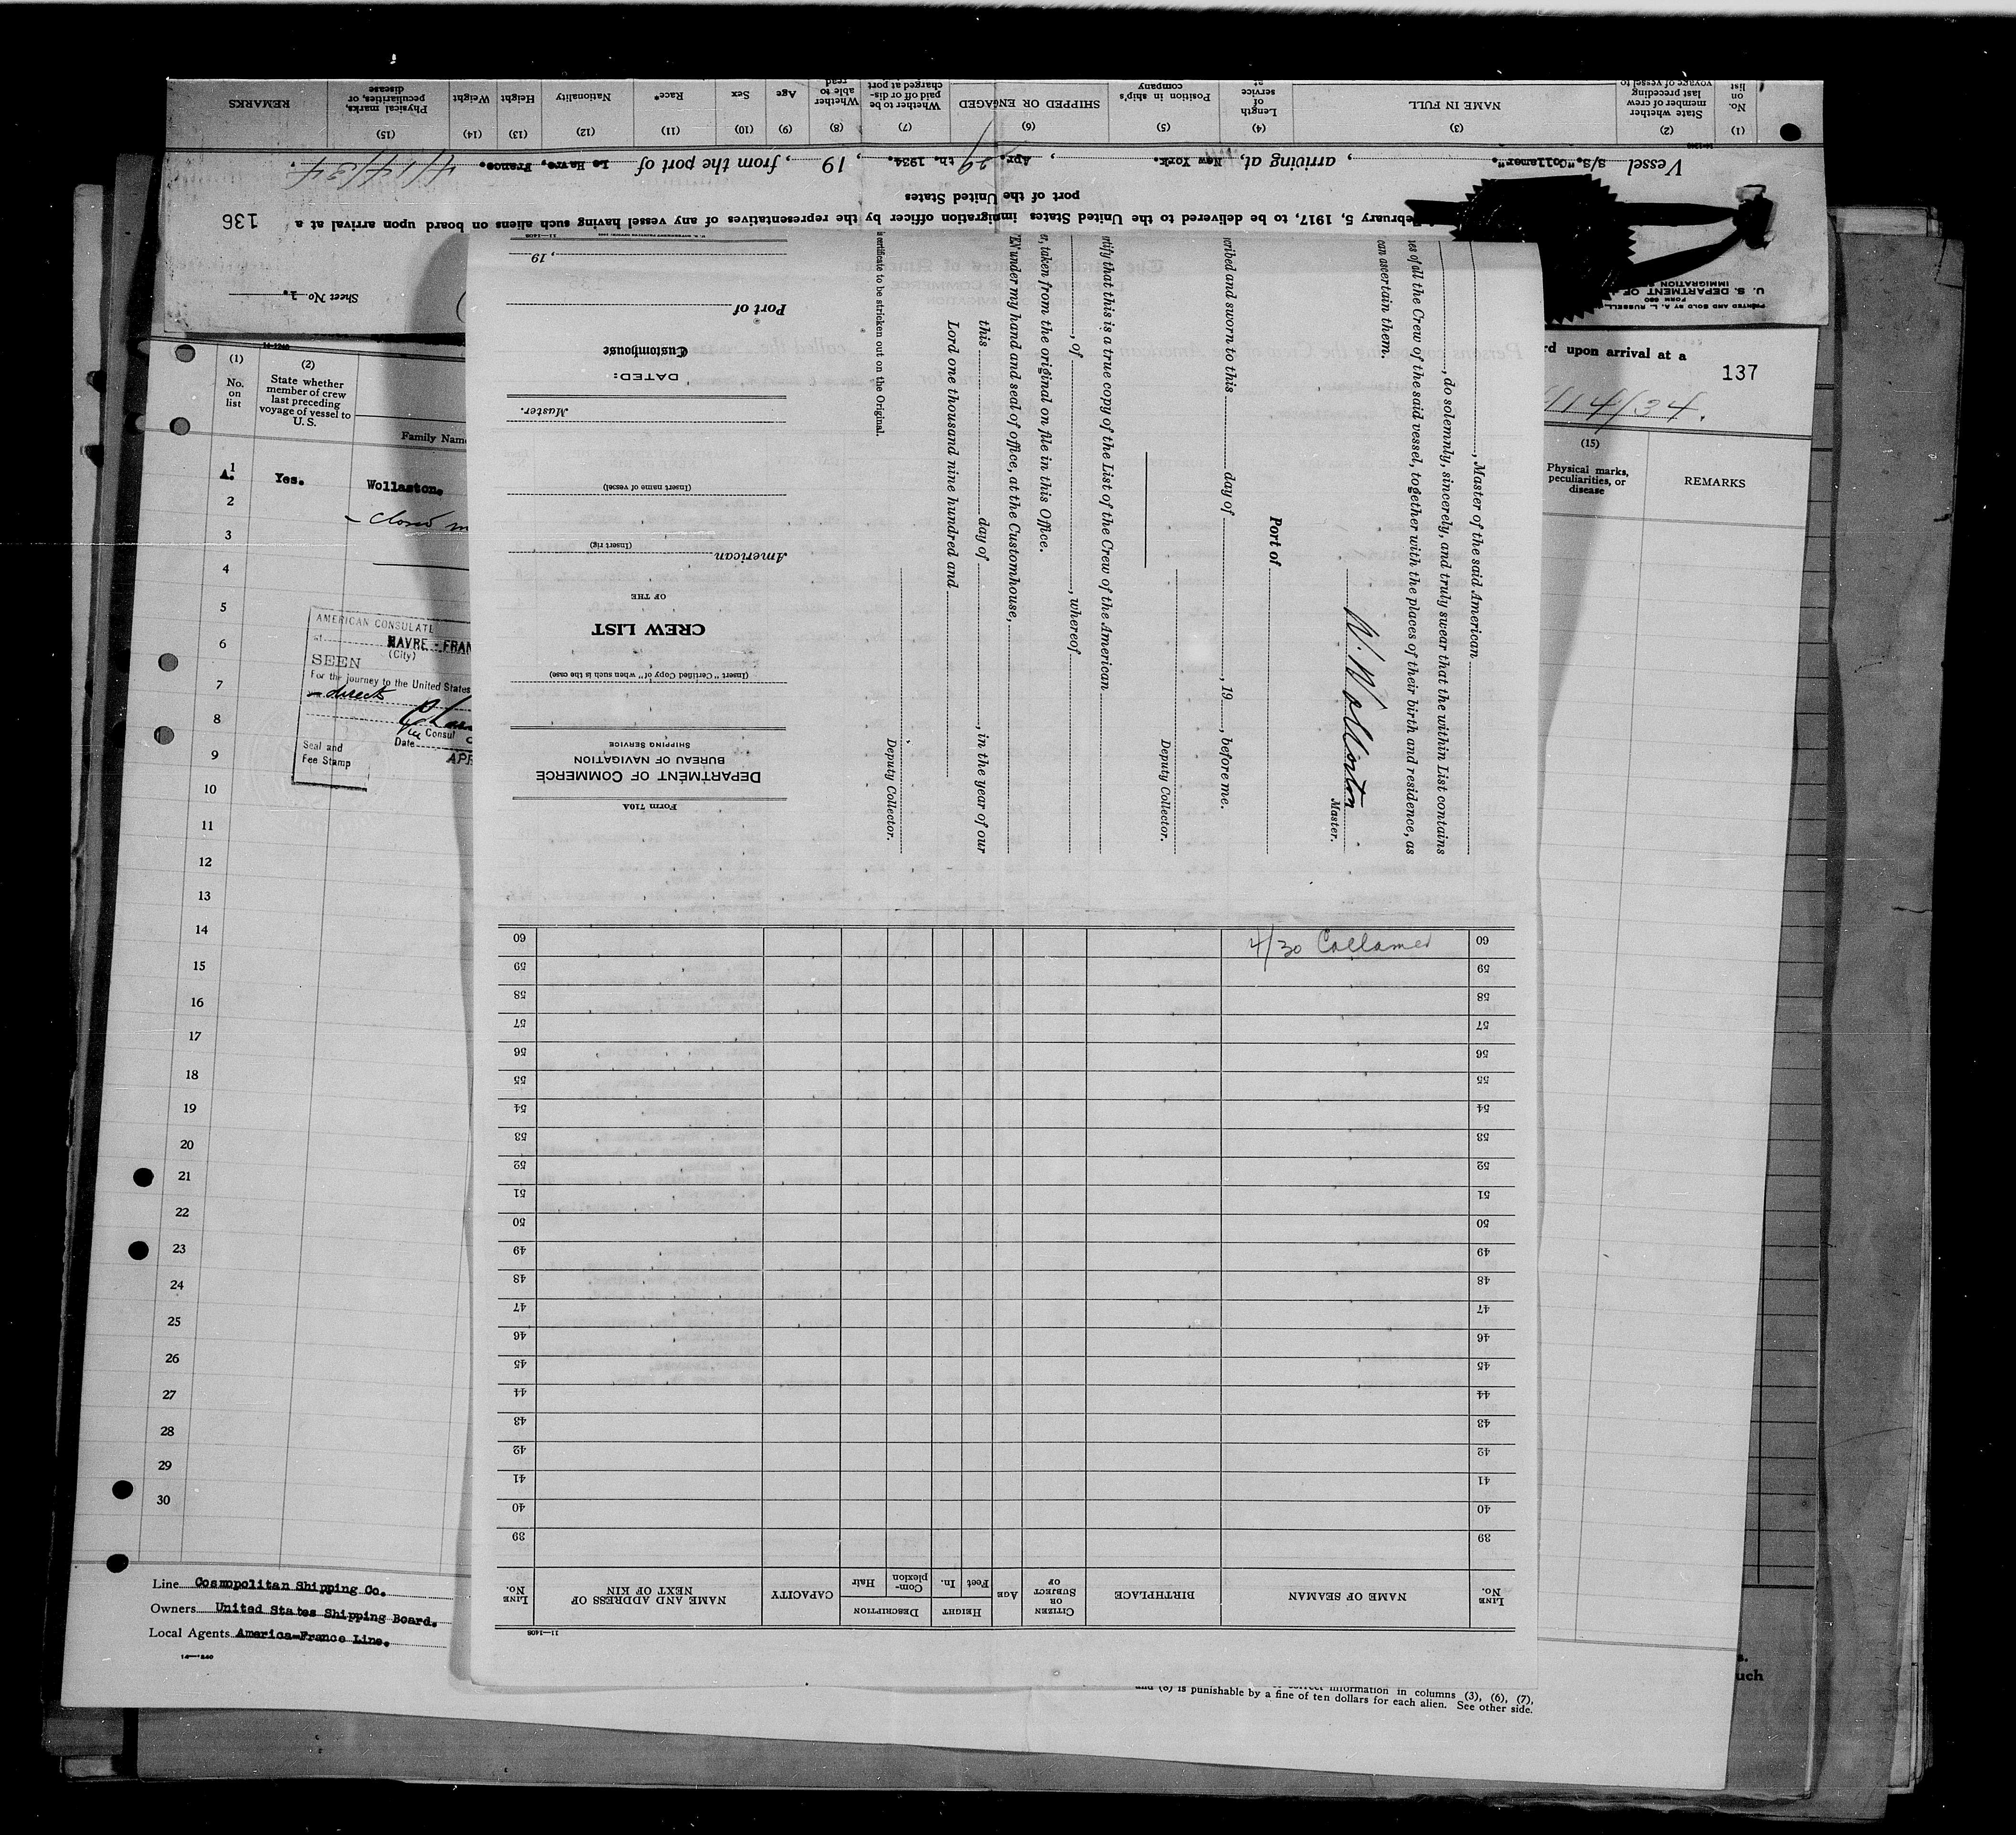 REMARKS
(15) Physical marks, peculiarities, or disease
(14) Weight
(13) Height
(12) Nationality
(11) Race*
(10) Sex
(9) Age
(8) Whether able to read
(7) Whether to be paid off or discharged at port
(6) SHIPPED OR ENGAGED
(5) Position in ship's company
(4) Length of service at
(3) NAME IN FULL
(2) State whether member of crew last preceding voyage of vessel to
(1) No. on list
Vessel S/S."Collamer"., arriving at, New York. Apr. 29 th. 1934., 19, from the port of Le Havre, France. 4/14/34.
February 5, 1917, to be delivered to the United States immigration officer by the representatives of any vessel having such aliens on board upon arrival at a
port of the United States
136
Sheet No. 1.
rd upon arrival at a
137
/14/34.
(1) No. on list
(2) State whether member of crew last preceding voyage of vessel to U. S.
Family Name
(15) Physical marks, peculiarities, or disease
REMARKS
1
A. Yes. Wollaston.
2
3
4
5
6
7
8
9
10
11
12
13
14
15
16
17
18
19
20
21
22
23
24
25
26
27
28
29
30
AMERICAN CONSULATE
at HAVRE - FRAN
(City)
SEEN
For the journey to the United States
direct
Consul
Date APR
Seal and
Fee Stamp
Line Cosmopolitan Shipping Co.
Owners United States Shipping Board.
Local Agents America-France Line.
Form 710A
DEPARTMENT OF COMMERCE
BUREAU OF NAVIGATION
SHIPPING SERVICE
(Insert "Certified Copy of" when such is the case)
CREW LIST
OF THE
American
(Insert rig)
(Insert name of vessel)
Master.
DATED:
Customhouse
Port of
, 19
11—1408
, Master of the said American
, do solemnly, sincerely, and truly swear that the within List contains
es of all the Crew of the said vessel, together with the places of their birth and residence, as
can ascertain them.
W. Wollaston
Master.
Port of
cribed and sworn to this day of , 19 , before me.
Deputy Collector.
rtify that this is a true copy of the List of the Crew of the American
, of , whereof
r, taken from the original on file in this Office.
EN under my hand and seal of office, at the Customhouse,
this day of , in the year of our
Lord one thousand nine hundred and
Deputy Collector.
certificate to be stricken out on the Original.
LINE No.
NAME OF SEAMAN
BIRTHPLACE
CITIZEN OR SUBJECT OF
AGE
HEIGHT
Feet
In.
DESCRIPTION
Complexion
Hair
CAPACITY
NAME AND ADDRESS OF NEXT OF KIN
LINE No.
39
40
41
42
43
44
45
46
47
48
49
50
51
52
53
54
55
56
57
58
59
60
4/30 Collamer
11—1408
information in columns (3), (6), (7),
and (8) is punishable by a fine of ten dollars for each alien. See other side.
s.
uch